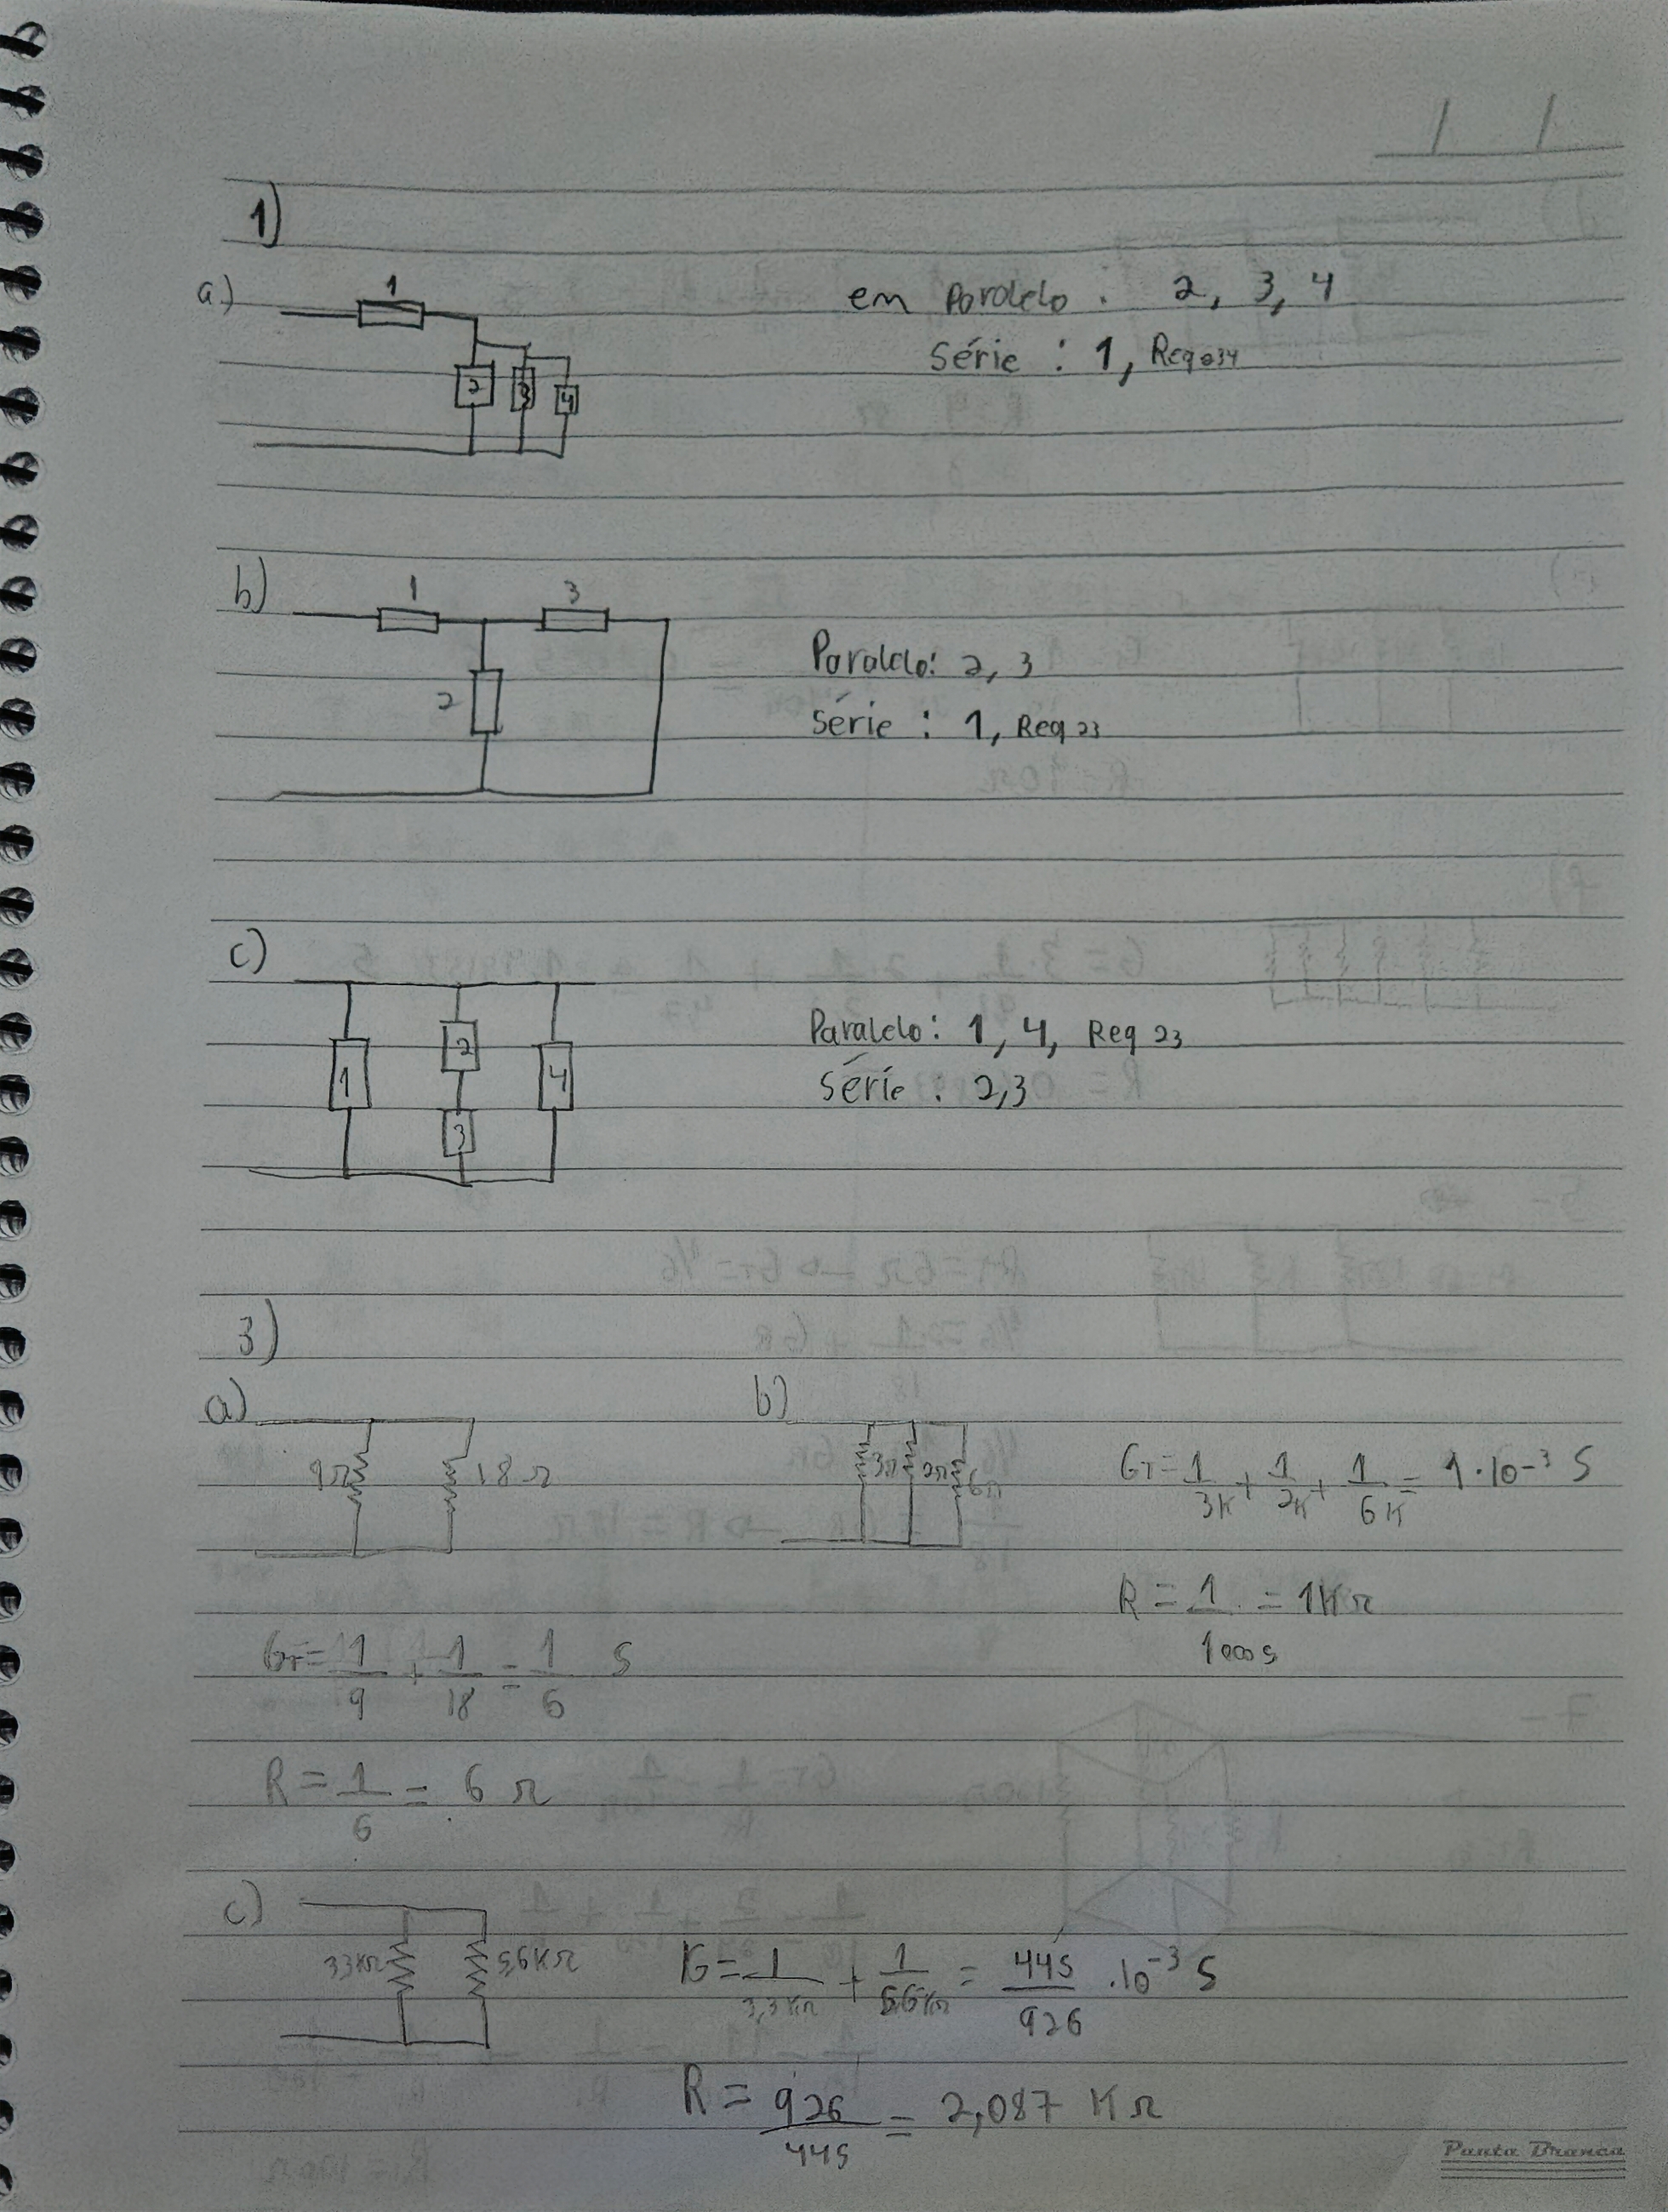 1)
a)
1
2
3
4
em Paralelo : 2, 3, 4
Série : 1, Req 234
b)
1
3
2
Paralelo: 2, 3
Série : 1, Req 23
c)
1
2
3
4
Paralelo: 1, 4, Req 23
Série : 2,3
3)
a)
9Ω
18 Ω
GT = 1/9 + 1/18 = 1/6 S
R = 1/6 = 6 Ω
b)
3Ω
2Ω
6Ω
GT = 1/3K + 1/2K + 1/6K = 1·10⁻³ S
R = 1/1000s = 1KΩ
c)
3,3KΩ
5,6KΩ
G = 1/3,3KΩ + 1/5,6KΩ = 445/926 .10⁻³ S
R = 926/445 = 2,087 KΩ
Pauta Branca